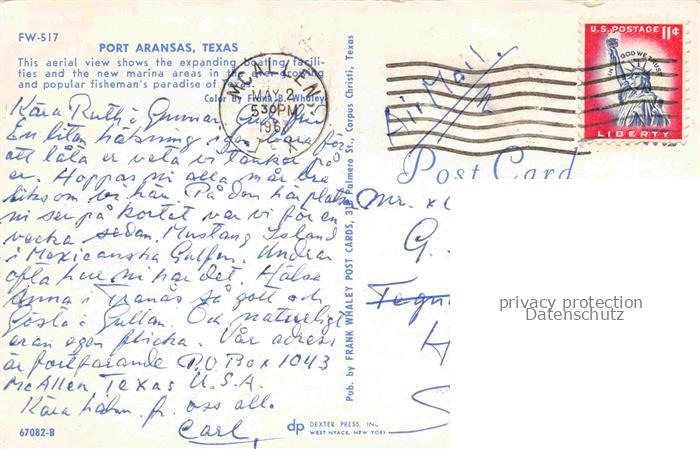 FW-517
PORT ARANSAS, TEXAS
This aerial view shows the expanding boating facili-
ties and the new marina areas in the ever growing
and popular fisheman's paradise of Texas.
Color by Frank B. Whaley
McALLEN
MAY 2
5 30PM
U.S. POSTAGE 11¢
IN GOD WE TRUST
LIBERTY
Air Mail.
Post Card
Kära Ruth & Gunnar
En liten hälsning igen bara för
att låta er veta vi tänker på
er. Hoppas ni alla mår bra
liksom vi här. På den här platsen
ni ser på kortet var vi för en
vecka sedan. Mustang Island
i Mexicanska Gulfen. Undrar
ofta hur ni har det. Hälsa
Anna i Tranås så gott och
Gösta i Gullan. Och naturligt
eran egen flicka. Vår adress
är fortfarande P.O. Box 1043
McAllen Texas U.S.A.
Kära hälsn. fr. oss all.
Carl
Mr. &
G.
H
S
Pub. by FRANK WHALEY POST CARDS, Palmero St., Corpus Christi, Texas
67082-B
dp DEXTER PRESS, INC.
WEST NYACK, NEW YORK
privacy protection
Datenschutz